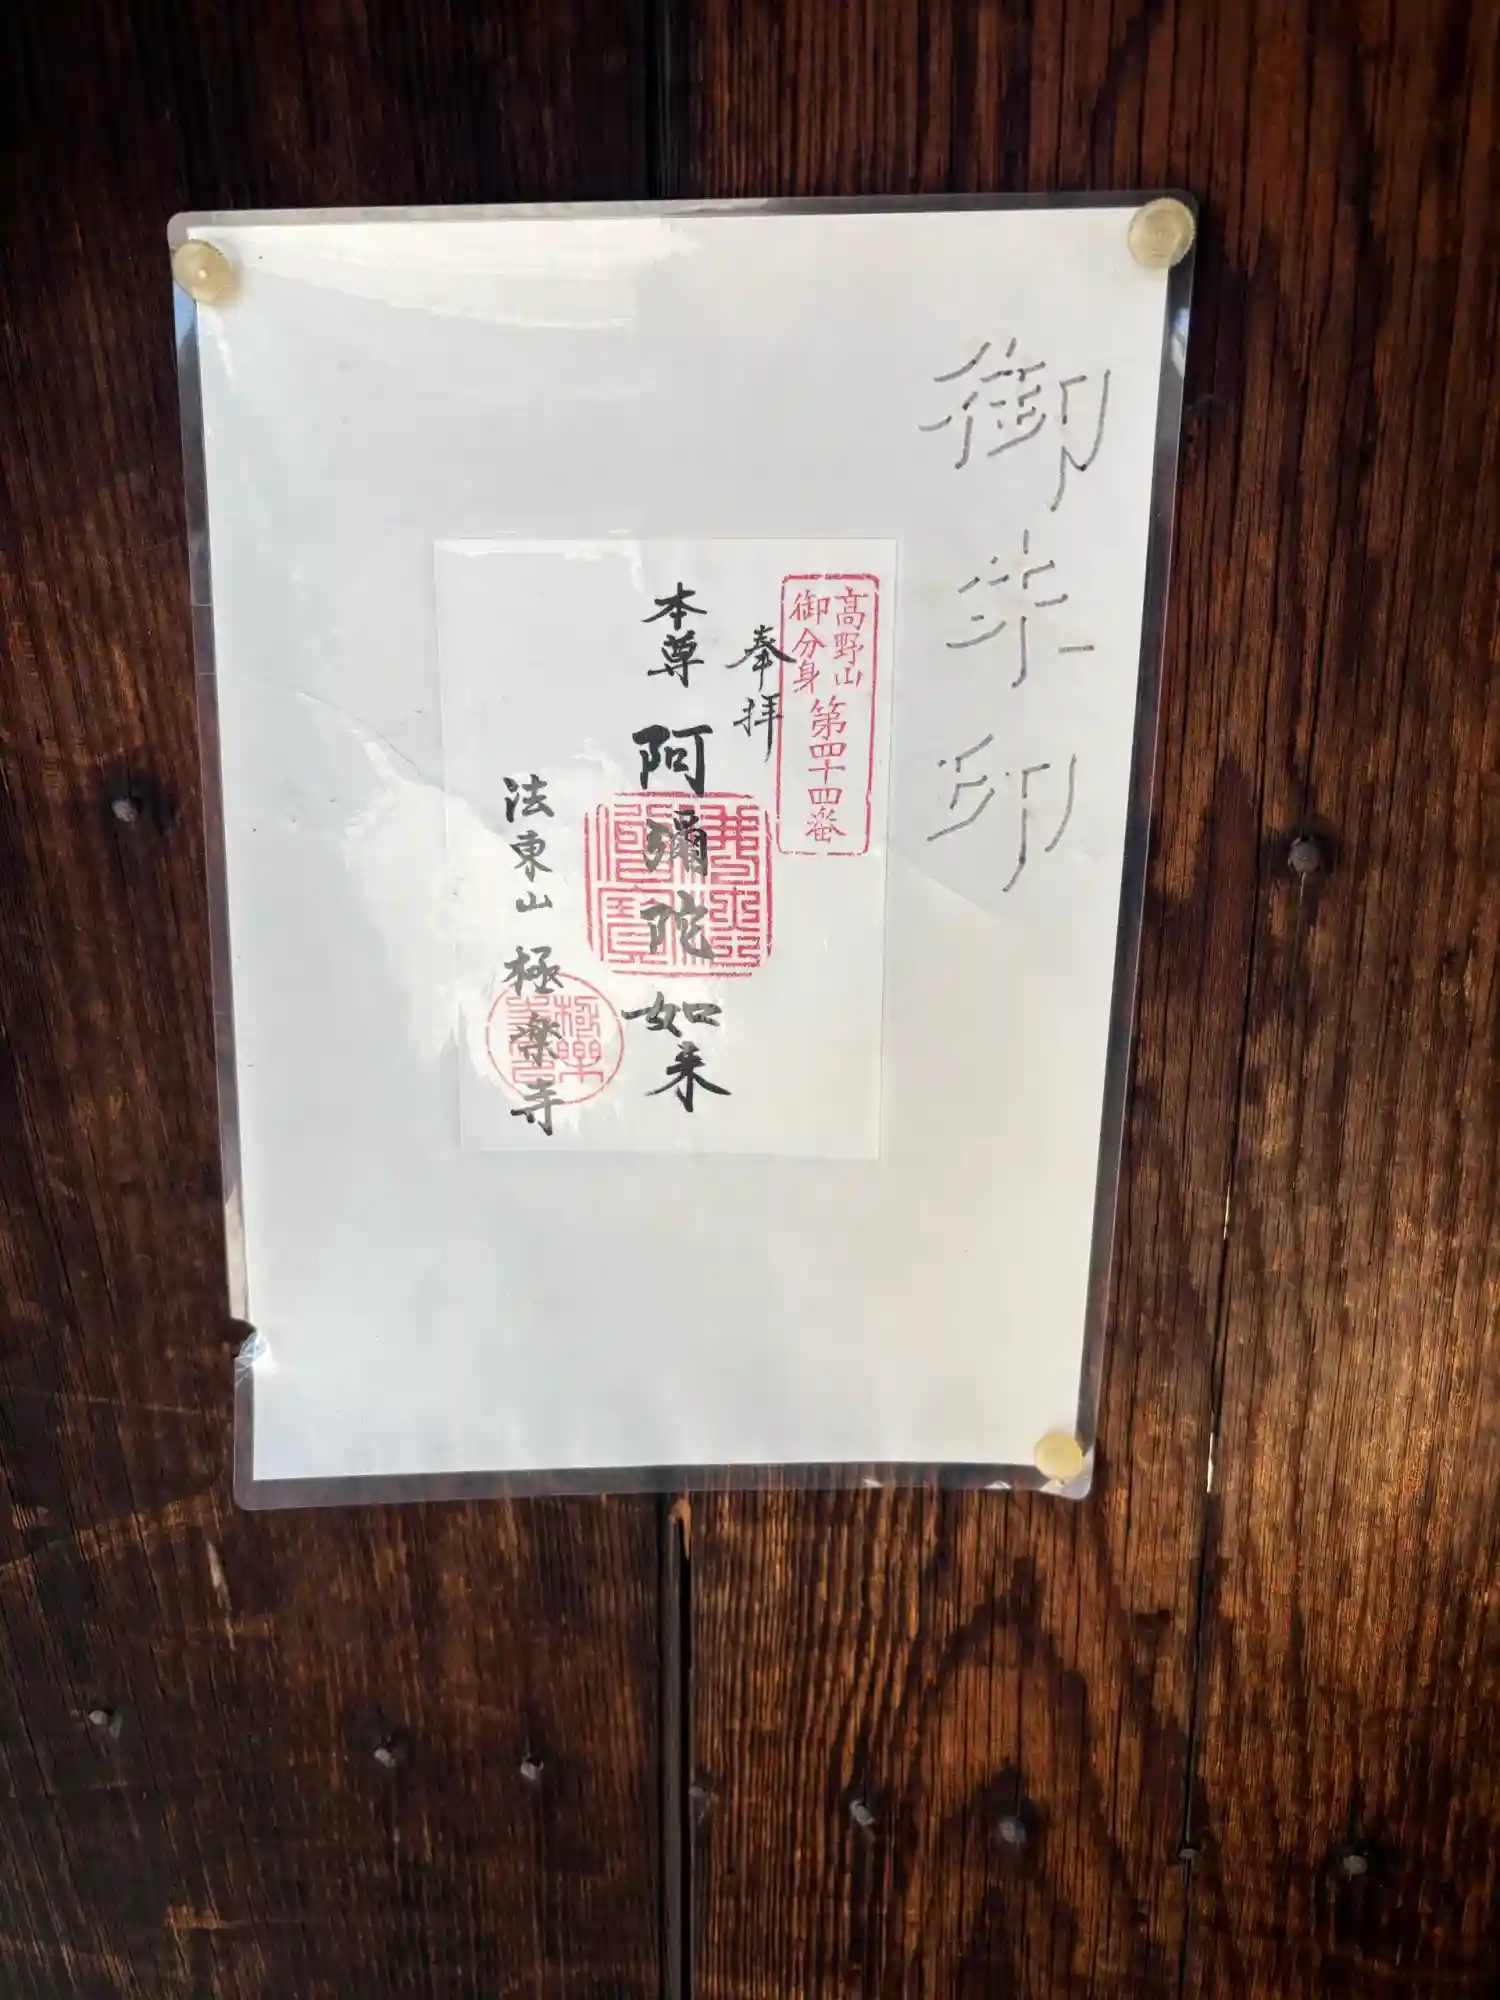 御朱印
高野山
御分身
第四十四番
奉拝
本尊 阿彌陀如来
法東山 極楽寺